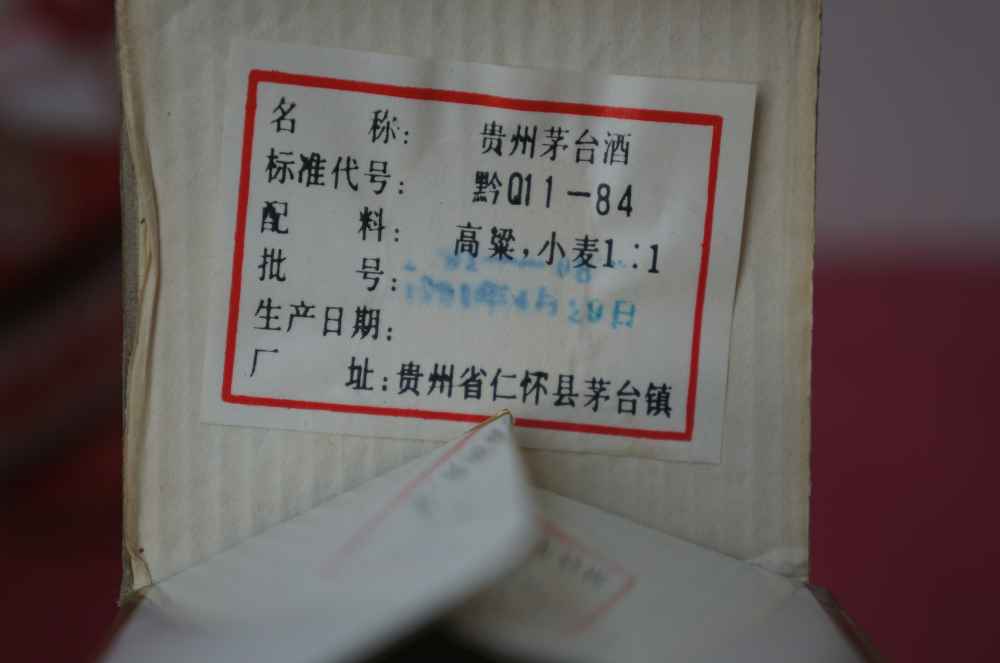 名 称: 贵州茅台酒
标准代号: 黔Q11-84
配 料: 高粱,小麦1:1
批 号:
生产日期:
厂 址: 贵州省仁怀县茅台镇